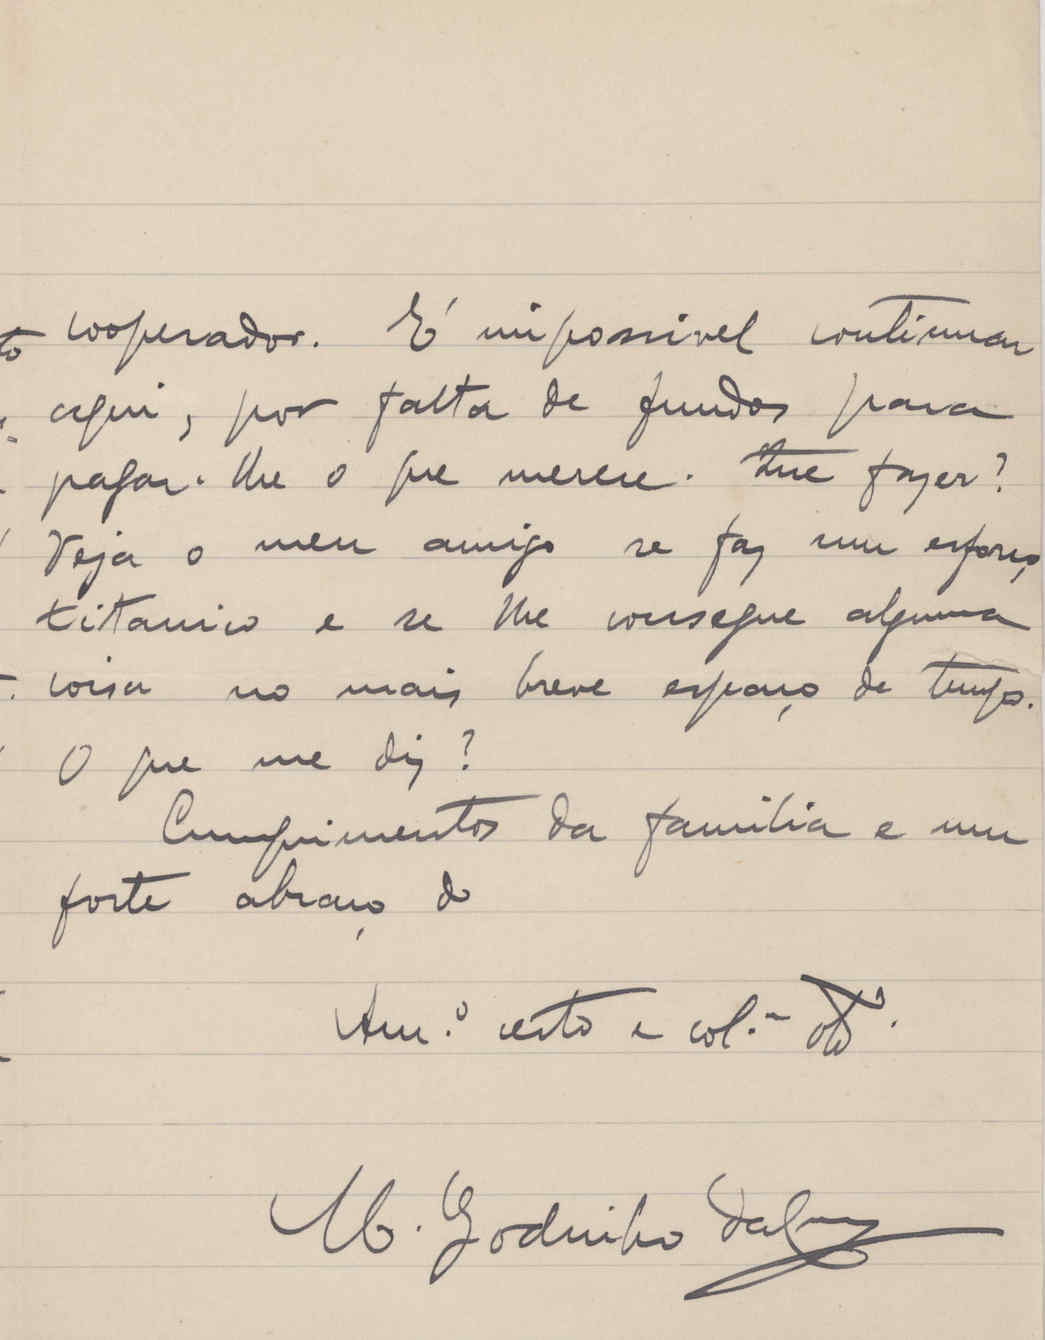 cooperador. É impossivel continuar
aqui, por falta de fundos para
pagar-lhe o que merece. Que fazer?
Veja o meu amigo se faz um esforço
titanico e se lhe consegue alguma
coisa no mais breve espaço de tempo.
O que me diz?
Cumprimentos da familia e um
forte abraço do
Am.º certo e col.ª obº.
M. Godinho